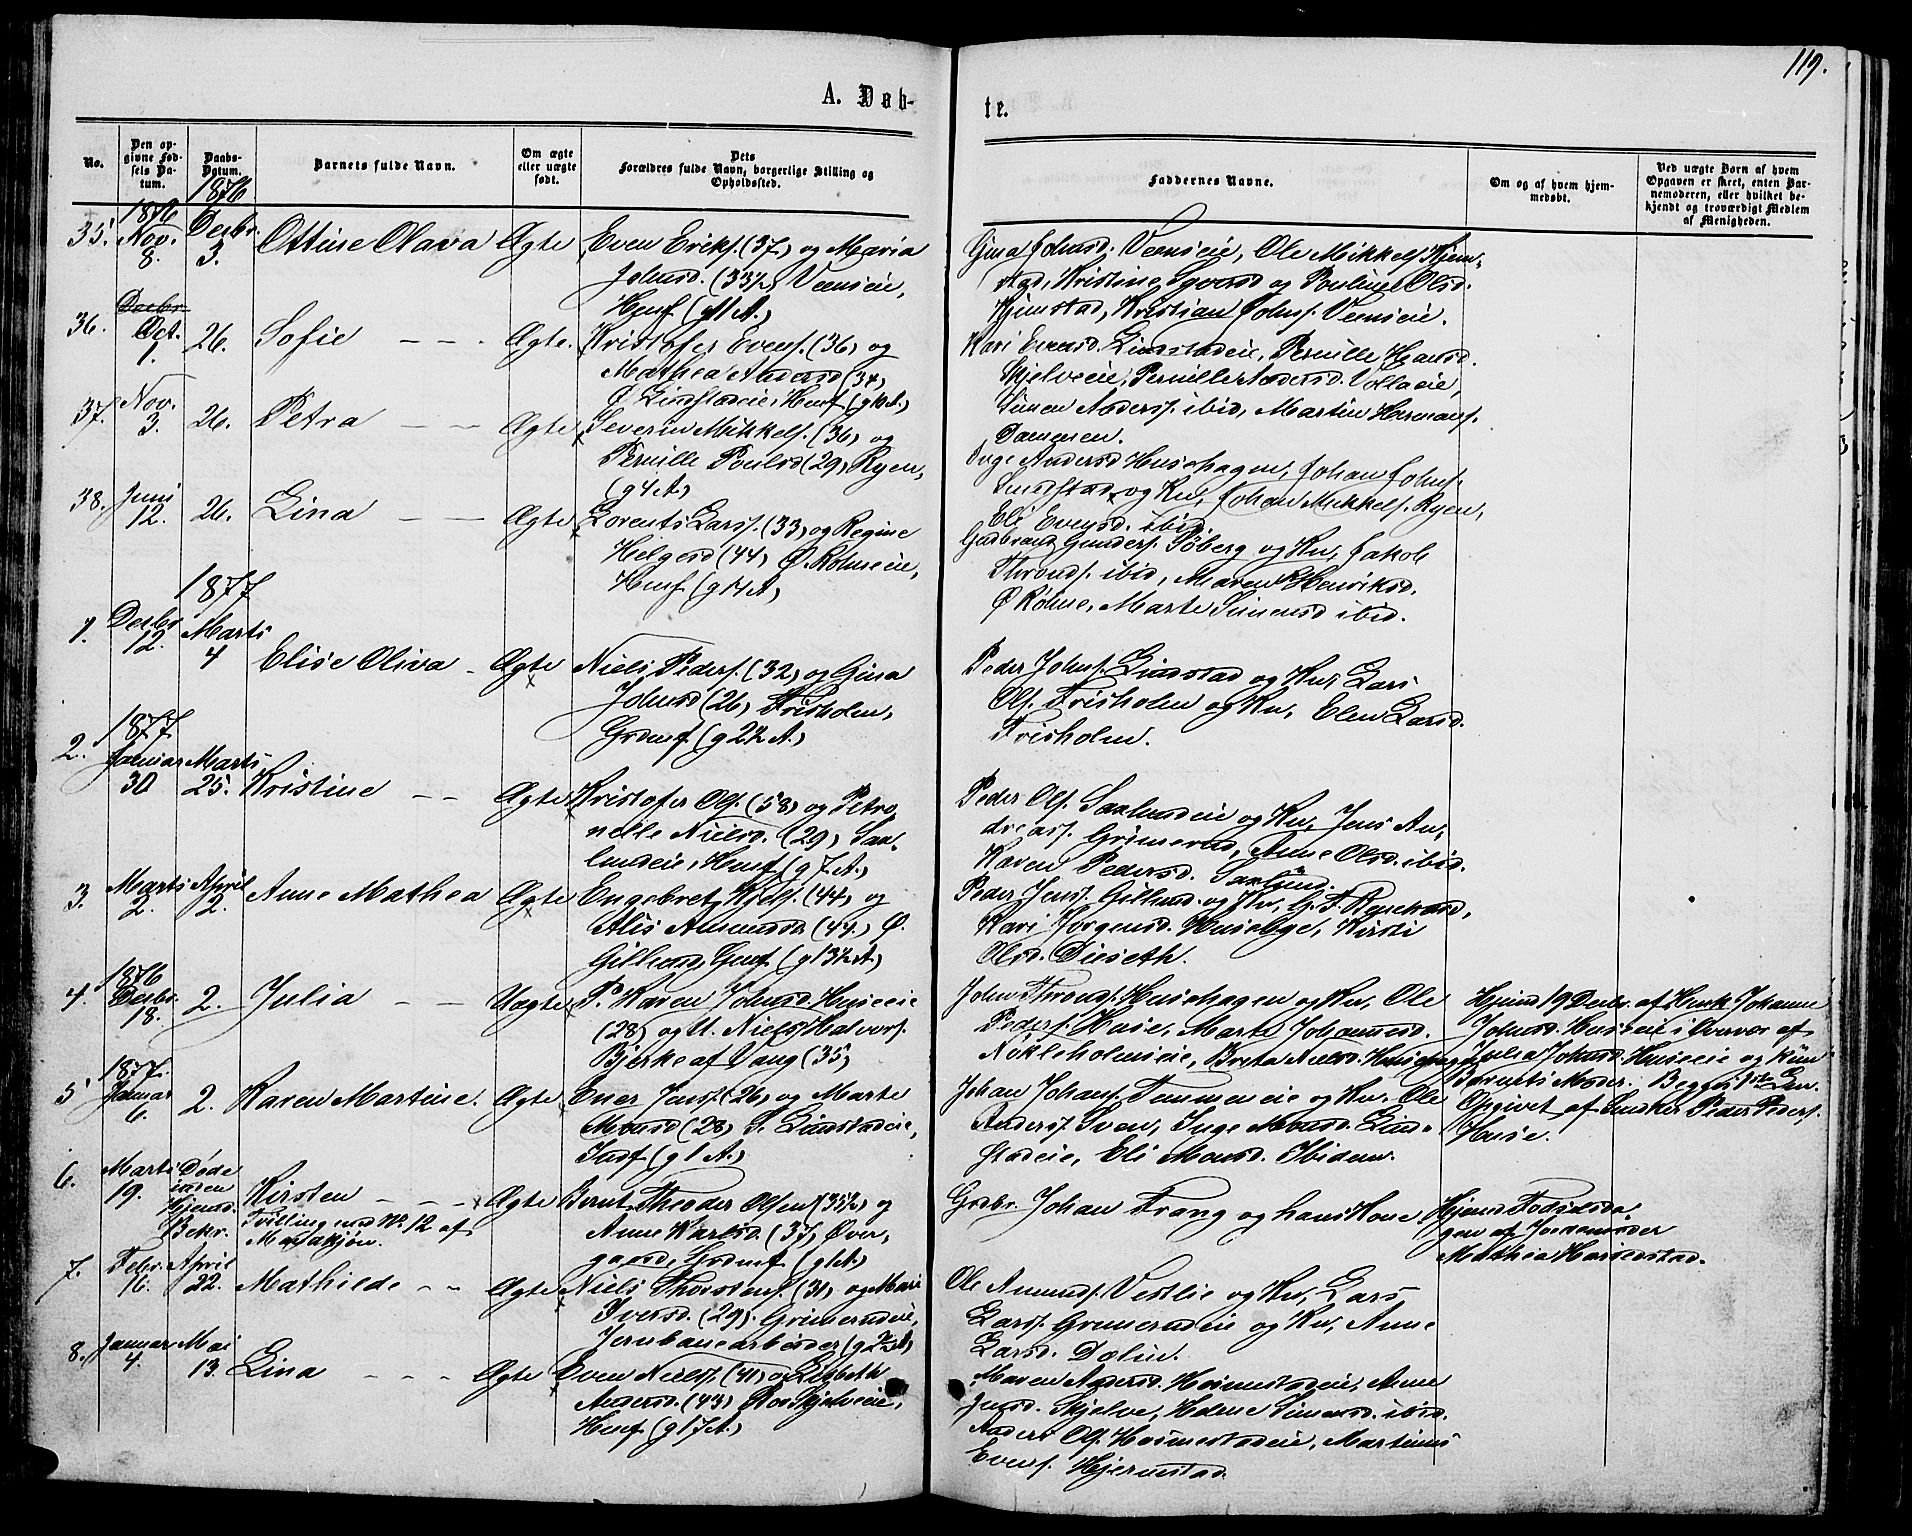 119.
A. Døb-
te.
No.
Den op-
givne Fød-
sels Da-
tum.
Daabs-
Datum.
Barnets fulde Navn.
Om ægte
eller uægte
født.
Dets
Forældres fulde Navn, borgerlige Stilling og
Opholdssted.
Faddernes Navne.
Om og af hvem hjem-
medøbt.
Ved uægte Børn af hvem
Opgaven er skeet, enten Bar-
nemoderen, eller hvilket be-
kjendt og troværdigt Medlem
af Menigheden.
1876
1876
35. Nov. 8. Decbr. 3. Ottine Olava Ægte
Even Eriks. (37) og Maria
Johnsd. (33½) Veenseie,
Hmf. (g 11 A.)
Gina Johnsd. Veenseie, Ole Mikkels. Hjem-
stad, Kristine Iversd og Pouline Olsd.
Hjemstad, Kristian Johns. Veenseie.
36. Decbr. Oct. 1. 26. Sofie — — Ægte.
Kristofer Evens. (36) og
Mathea Andersd (34)
Ø Lindstadeie, Hmf. (g 10 A.)
Kari Evensd. Lindstadeie, Pernille Hansd.
Skjelveeie, Pernille Andersd. Vollaeie,
Simen Anderss. ibid, Martin Hermans.
Dammen.
37. Nov. 3. 26. Petra — — Ægte
Severin Mikkels. (36) og
Pernille Poulsd (29) Ryen,
(g 4 A.)
Inge Andersd Husehagen, Johan Johns.
Lindstad og Kv, Johan Mikkels. Ryen,
Eli Evensd. ibid
38. Juni 12. 26. Lina — — Ægte
Lorents Larss. (33) og Regine
Helgesd (44) Ø Rohneeie,
Hmf. (g 14 A)
Gudbrand Gunders. Søberg og Kv, Jakob
Thronds. ibid, Maren Henriksd.
Ø Rohne, Marte Simensd ibid.
1877
1. Decbr 12. Marts 4 Elise Oliva - Ægte
Niels Peders. (32) og Gina
Johnsd (26) Frisholm,
Grdmf. (g 2½ A.)
Peder Johns. Lindstad og Kv, Lars
Ols. Frisholm og Kv, Elen Larsd.
Frisholm.
1877.
2. Januar 30 Marts 25. Kristine — — Ægte
Kristofer Ols. (58) og Petro-
nelle Nielsd. (29) Saa-
lundeie, Hmf. (g 7 A.)
Peder Ols. Saalundeie og Kv, Jens An-
dreass. Grimerud, Anne Olsd. ibid.
Karen Pedersd. Saalund.
3. Marts 2. April 2. Anne Mathea Ægte
Engebret Kjels. (44) og
Alis Amundsd. (44) Ø.
Gillund, Gmf. (g 13½ A)
Peder Jens. Gillund og Kv, G. T. Rysekasd,
Kari Jørgensd. Husebye, Kirsti
Olsd. Dieseth.
1876
4. Decbr. 18. 2. Julia — — Uægte
P. Karen Johnsd. Huseeie
(28) og U. Niels Halvors.
Bjerke af Vang (35)
John Thronds. Husehagen og Kv, Ole
Peders. Huse, Marte Johannesd.
Nekleholmseie, Berta Nielsd. Husehage
Hjemd 19 Decbr. af Henk. Johanne
Johnsd. Huseeie i Overvær af
Julia Johnsd. Huseeie og
Barnets Moder.
Opgivet af Peder Peders.
Huse.
1877.
5 Januar 6. 2. Karen Martine. Ægte
Ener Jens. (26) og Marte
Monsd (28) S. Lindstadeie,
Indf. (g 1 A.)
Johan Johans. Tommeneie og Kv, Ole
Anders. Sven, Inge Monsd. Lind-
stadeie, Eli Monsd. Ibidem.
6. Marts 19. Døde inden Hjemd. Bekr. Kirsten — — Ægte
Tvilling med No 12 af
Mandkjøn.
Bernt Theodor Olsen (35½) og
Anne Karlsd. (37) Øver-
gaard, Grdmf. (g 1 A)
Grdbr Johan Frang og hans Kone
Hjemd. Fødselsda-
gen af Jordemoder
Mathea Harildstad.
7. Febr. 16. April 22. Mathilde — — Ægte
Niels Thorstens. (31) og Mari
Iversd. (29). Grimerudeie,
Jernbanearbeider (g 2½ A)
Ole Amunds. Vestlie og Kv, Lars
Larss. Grimerudeie og Kv, Anne
Larsd. Dælin.
8. Januar 4. Mai 13. Lina — — — Ægte
Even Niels. (41) og Lisbeth
Andersd. (43) Skjelveeie,
Hmf. (g 17 A)
Maren Andersd. Hornestadeie, Anne
Jensd. Skjelve, Helene Simensd. ibid.
Anders Ols. Hornestadeie, Martinus
Evens. Hjernstad.